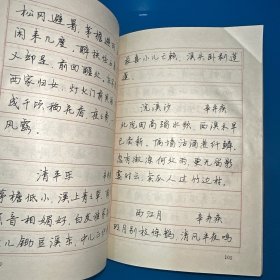 松冈避暑,茅檐避
闲来几度,醉扶怪石
又却是,前回醒处。
西家归女,灯火门前
成千顷稻花香,夜夜
风露。
清平乐
茅檐低小,溪上青青草。
吴音相媚好,白发谁家
儿锄豆溪东,中儿正
最喜小儿亡赖,溪头卧剥莲
蓬。
浣溪沙 辛弃疾
北陇田高踏水频,西溪禾早
已尝新,隔墙沽酒煮纤鳞。
忽有微凉何处雨,更无留影
霎时云,卖瓜人过竹边村。
西江月 辛弃疾
明月别枝惊鹊,清风半夜鸣